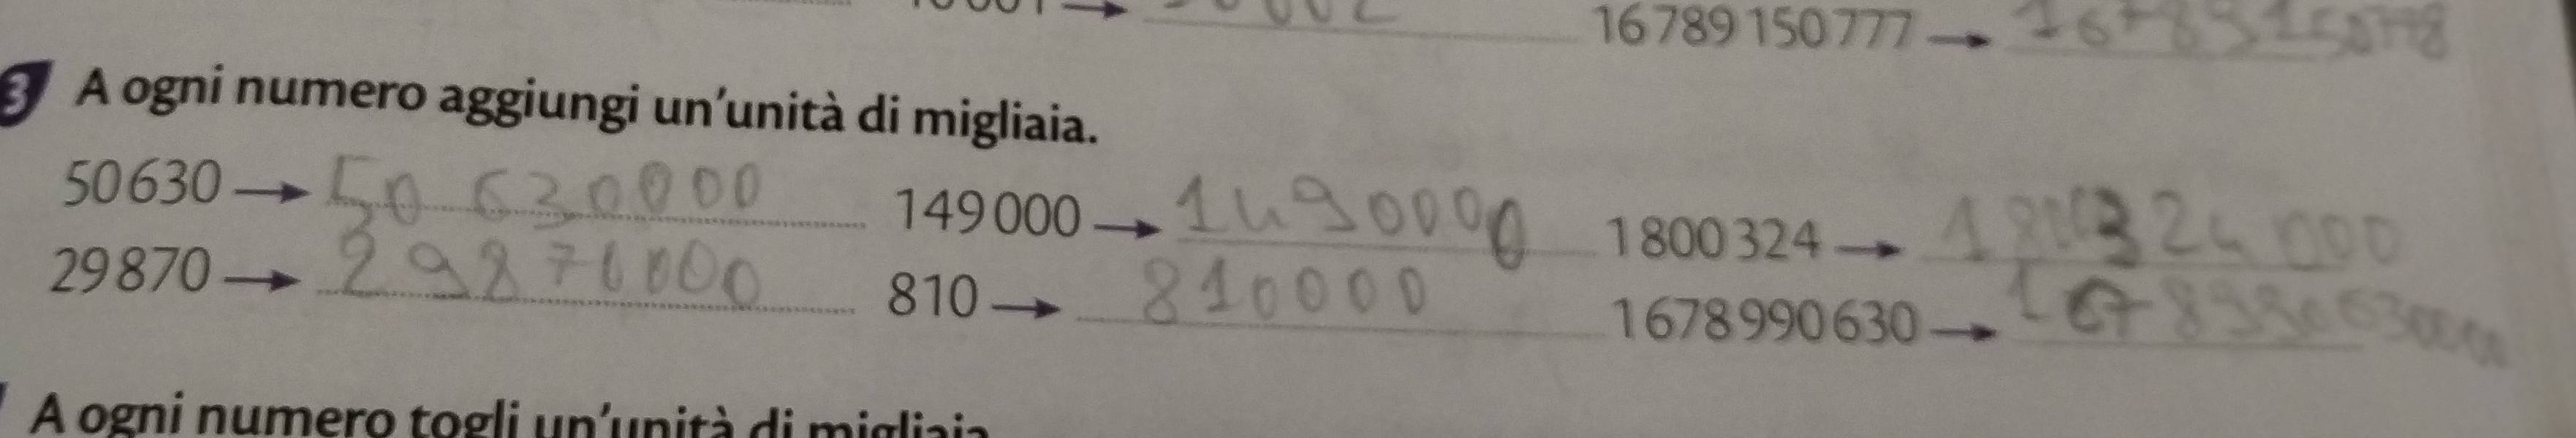 16 789 150 777 → 16789150778
3 A ogni numero aggiungi un'unità di migliaia.
50 630 → 50 630000 149 000 → 149000000 1 800 324 → 1800324 000
29 870 → 29870000 810 → 810000 1 678 990 630 →
A ogni numero togli un'unità di migliaia